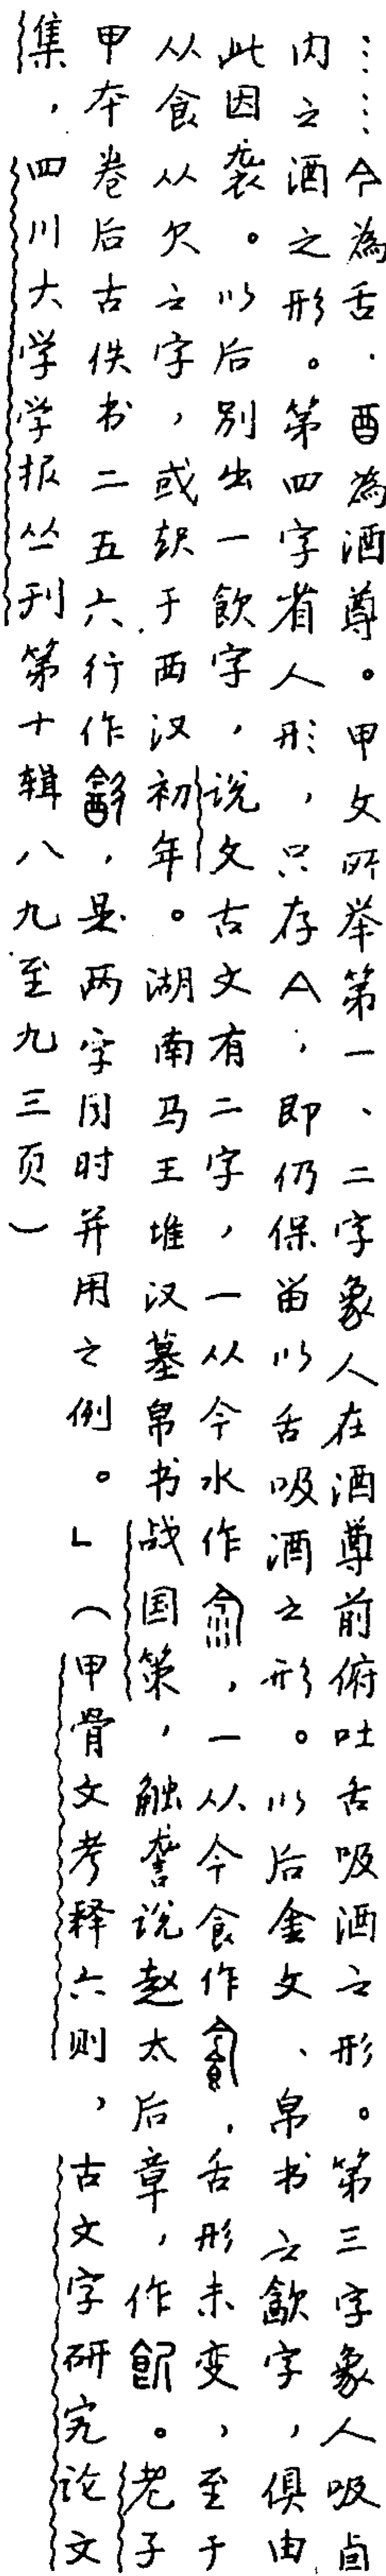 ……A為舌，酉為酒尊。甲文所举第一、二字象人在酒尊前俯吐舌吸酒之形。第三字象人吸卣
内之酒之形。第四字省人形，只存A，即仍保留以舌吸酒之形。以后金文、帛书之歙字，俱由
此因袭。以后别出一飲字，说文古文有二字，一从今水作㱃，一从今食作，舌形未变，至于
从食从欠之字，或起于西汉初年。湖南马王堆汉墓帛书战国策，触詟说赵太后章，作飲。老子
甲本卷后古佚书二五六行作，是两字同时并用之例。」（甲骨文考释六则，古文字研究论文
集，四川大学学报丛刊第十辑八九至九三页）